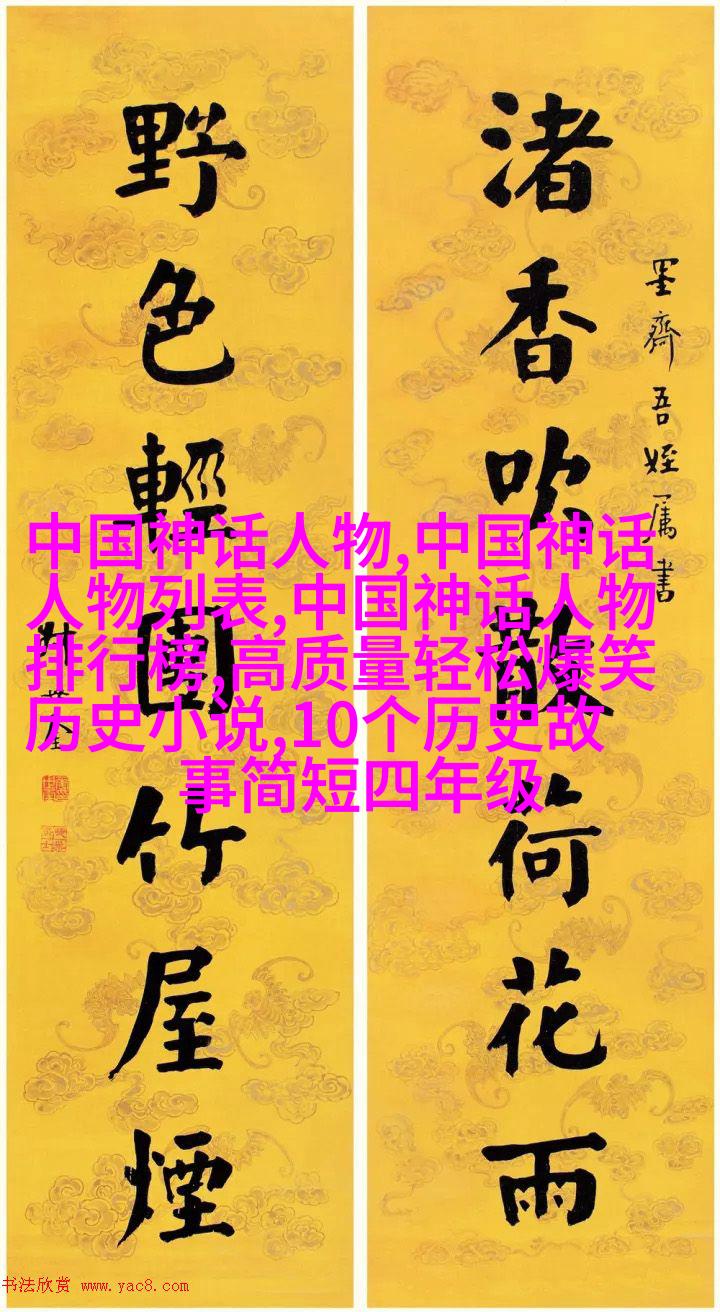 墨齋吾姪属書
渚香吹散荷花雨
野色輕竹屋煙
中国神话人物,中国神话
人物列表,中国神话人物
排行榜,高质量轻松爆笑
历史小说,10个历史故
事简短四年级
书法欣赏 www.yac8.com